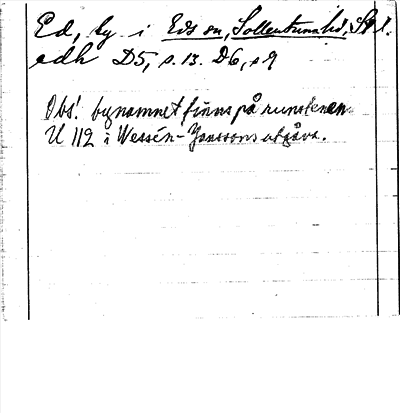 Ed, by i Eds sn, Sollentuna hd, Stl.
edh D5, s. 13. D6, s 9
Obs! bynamnet finns på runstenen
U 112 i Wessén-Janssons utgåva.